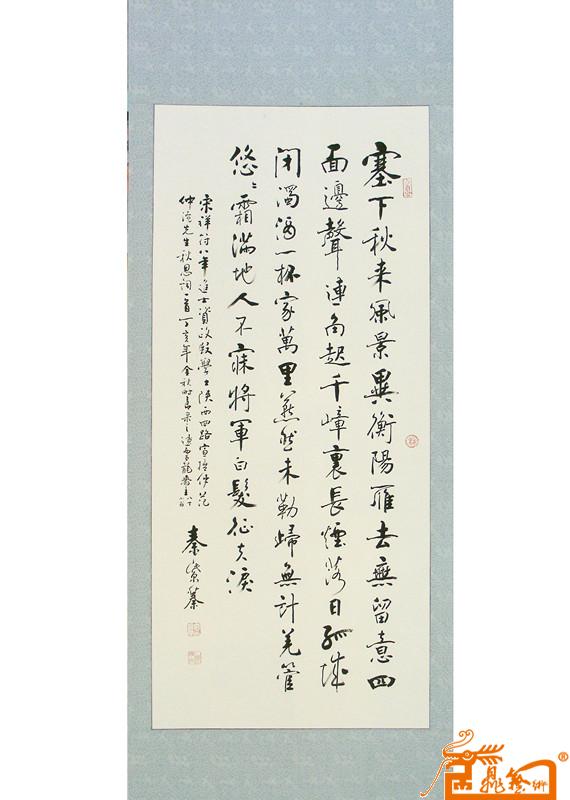 塞下秋来風景異衡陽雁去無留意四
面邊聲連角起千嶂裏長煙落日孤城
閉濁酒一杯家萬里燕然未勒歸無計羌管
悠〻霜滿地人不寐將軍白髮征夫淚
宋祥符八年進士資政殿學士陝西四路宣撫使范
仲淹先生秋思詞一首丁亥年金秋時